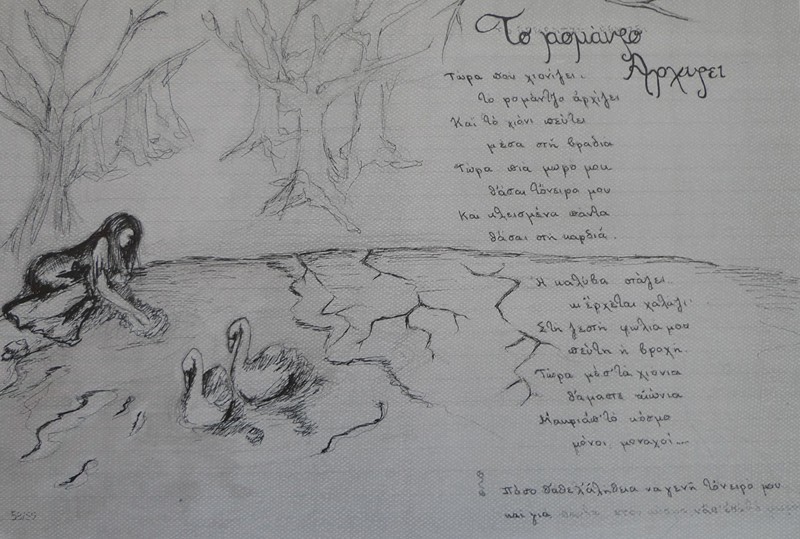 Το ρομάντζο
Αρχιζει
Τωρα που χιονιζει.
το ρομάντζο ἀρχίζει
Και τὸ χιόνι πεύτει
μέσα στὴ βραδια
Τώρα πια μωρο μου
θἆσαι τὄνειρο μου
Και κλεισμένα πάντα
θἆσαι στη καρδιά.
Ἡ καλύβα στάζει
κι ἔρχεται χαλάζι
Στη ζεστή φωλια μου
πεύτη ἡ βροχή.
Τώρα μέσ'τὰ χιονια
θἄμαστε αἰώνια
Μακριάπ'τὸ κόσμο
μόνοι μοναχοί...
πόσο θἄθελ'ἀλήθεια να γενῆ τὄνειρο μου
και για